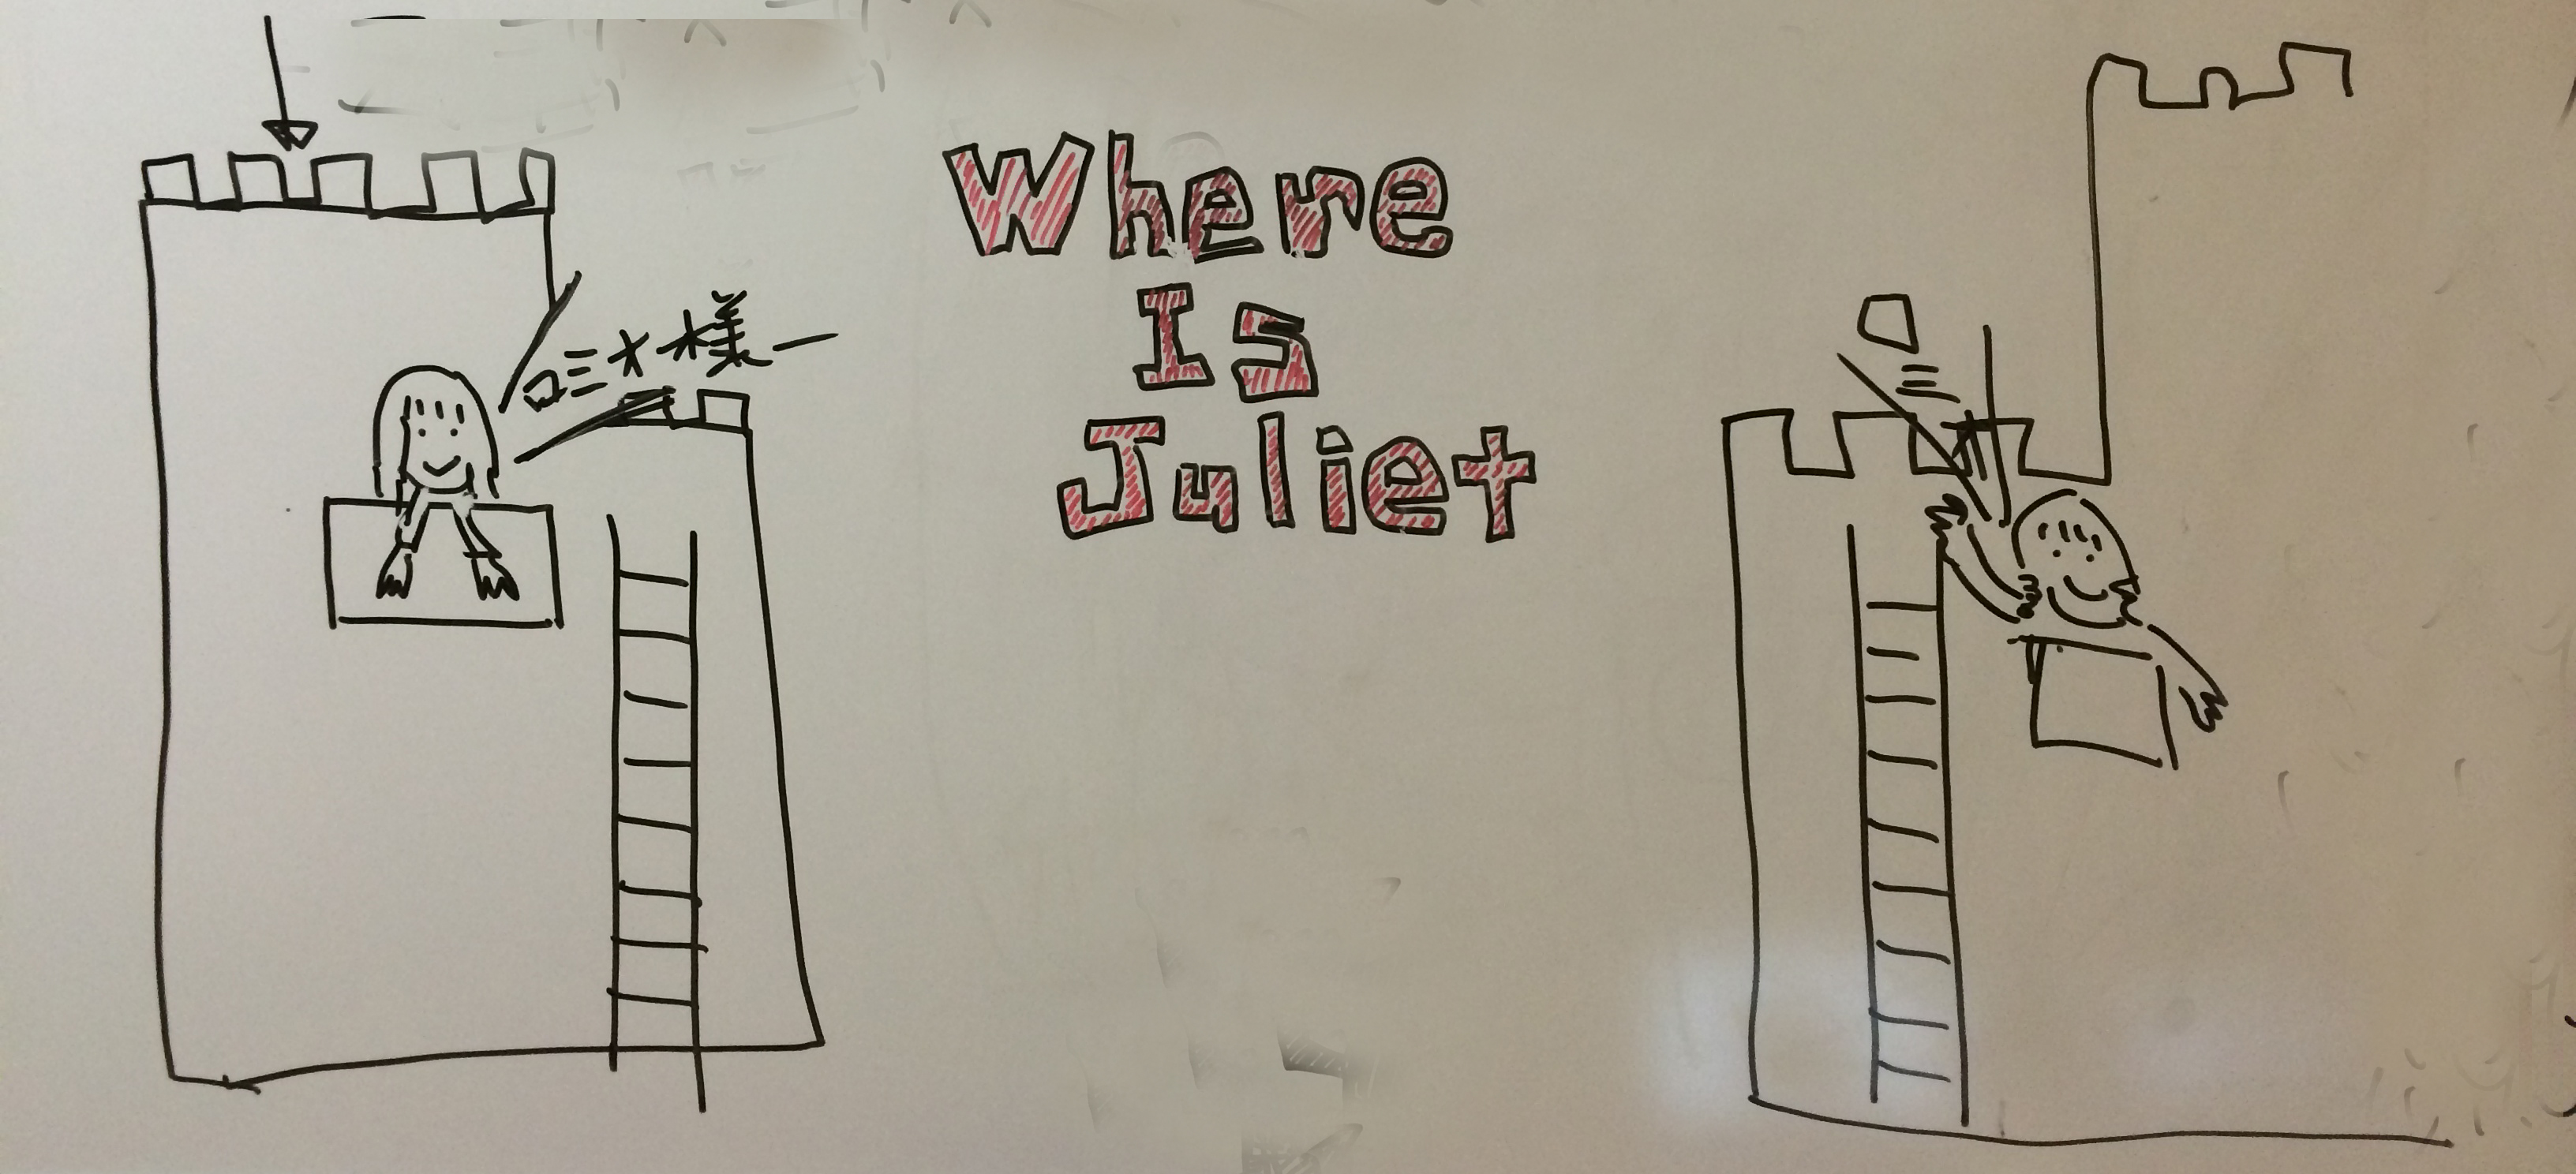 ロミオ様ー
Where
Is
Juliet
ロミオ